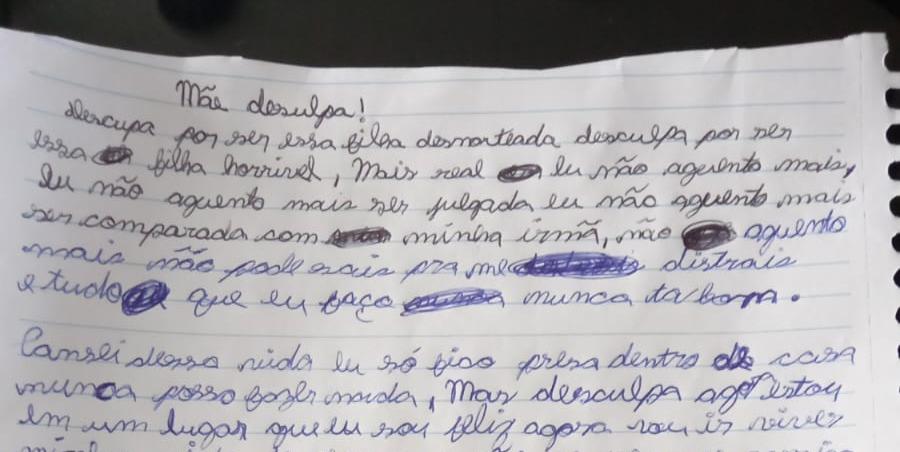 Mãe desculpa!
descupa por ser essa filha desmanteada desculpa por ser
essa filha horrivel, Mais real eu não aguento mais,
Eu não aguento mais ser julgada eu não aguento mais
ser comparada com minha irmã, não aguento
mais não pode sais pra me distrais
e tudo que eu faço nunca ta bom.
Cansei dessa vida eu só fico presa dentro de casa
nunca posso fazer nada, Mas desculpa agor estou
em um lugar que eu sou feliz agora vou ir viver